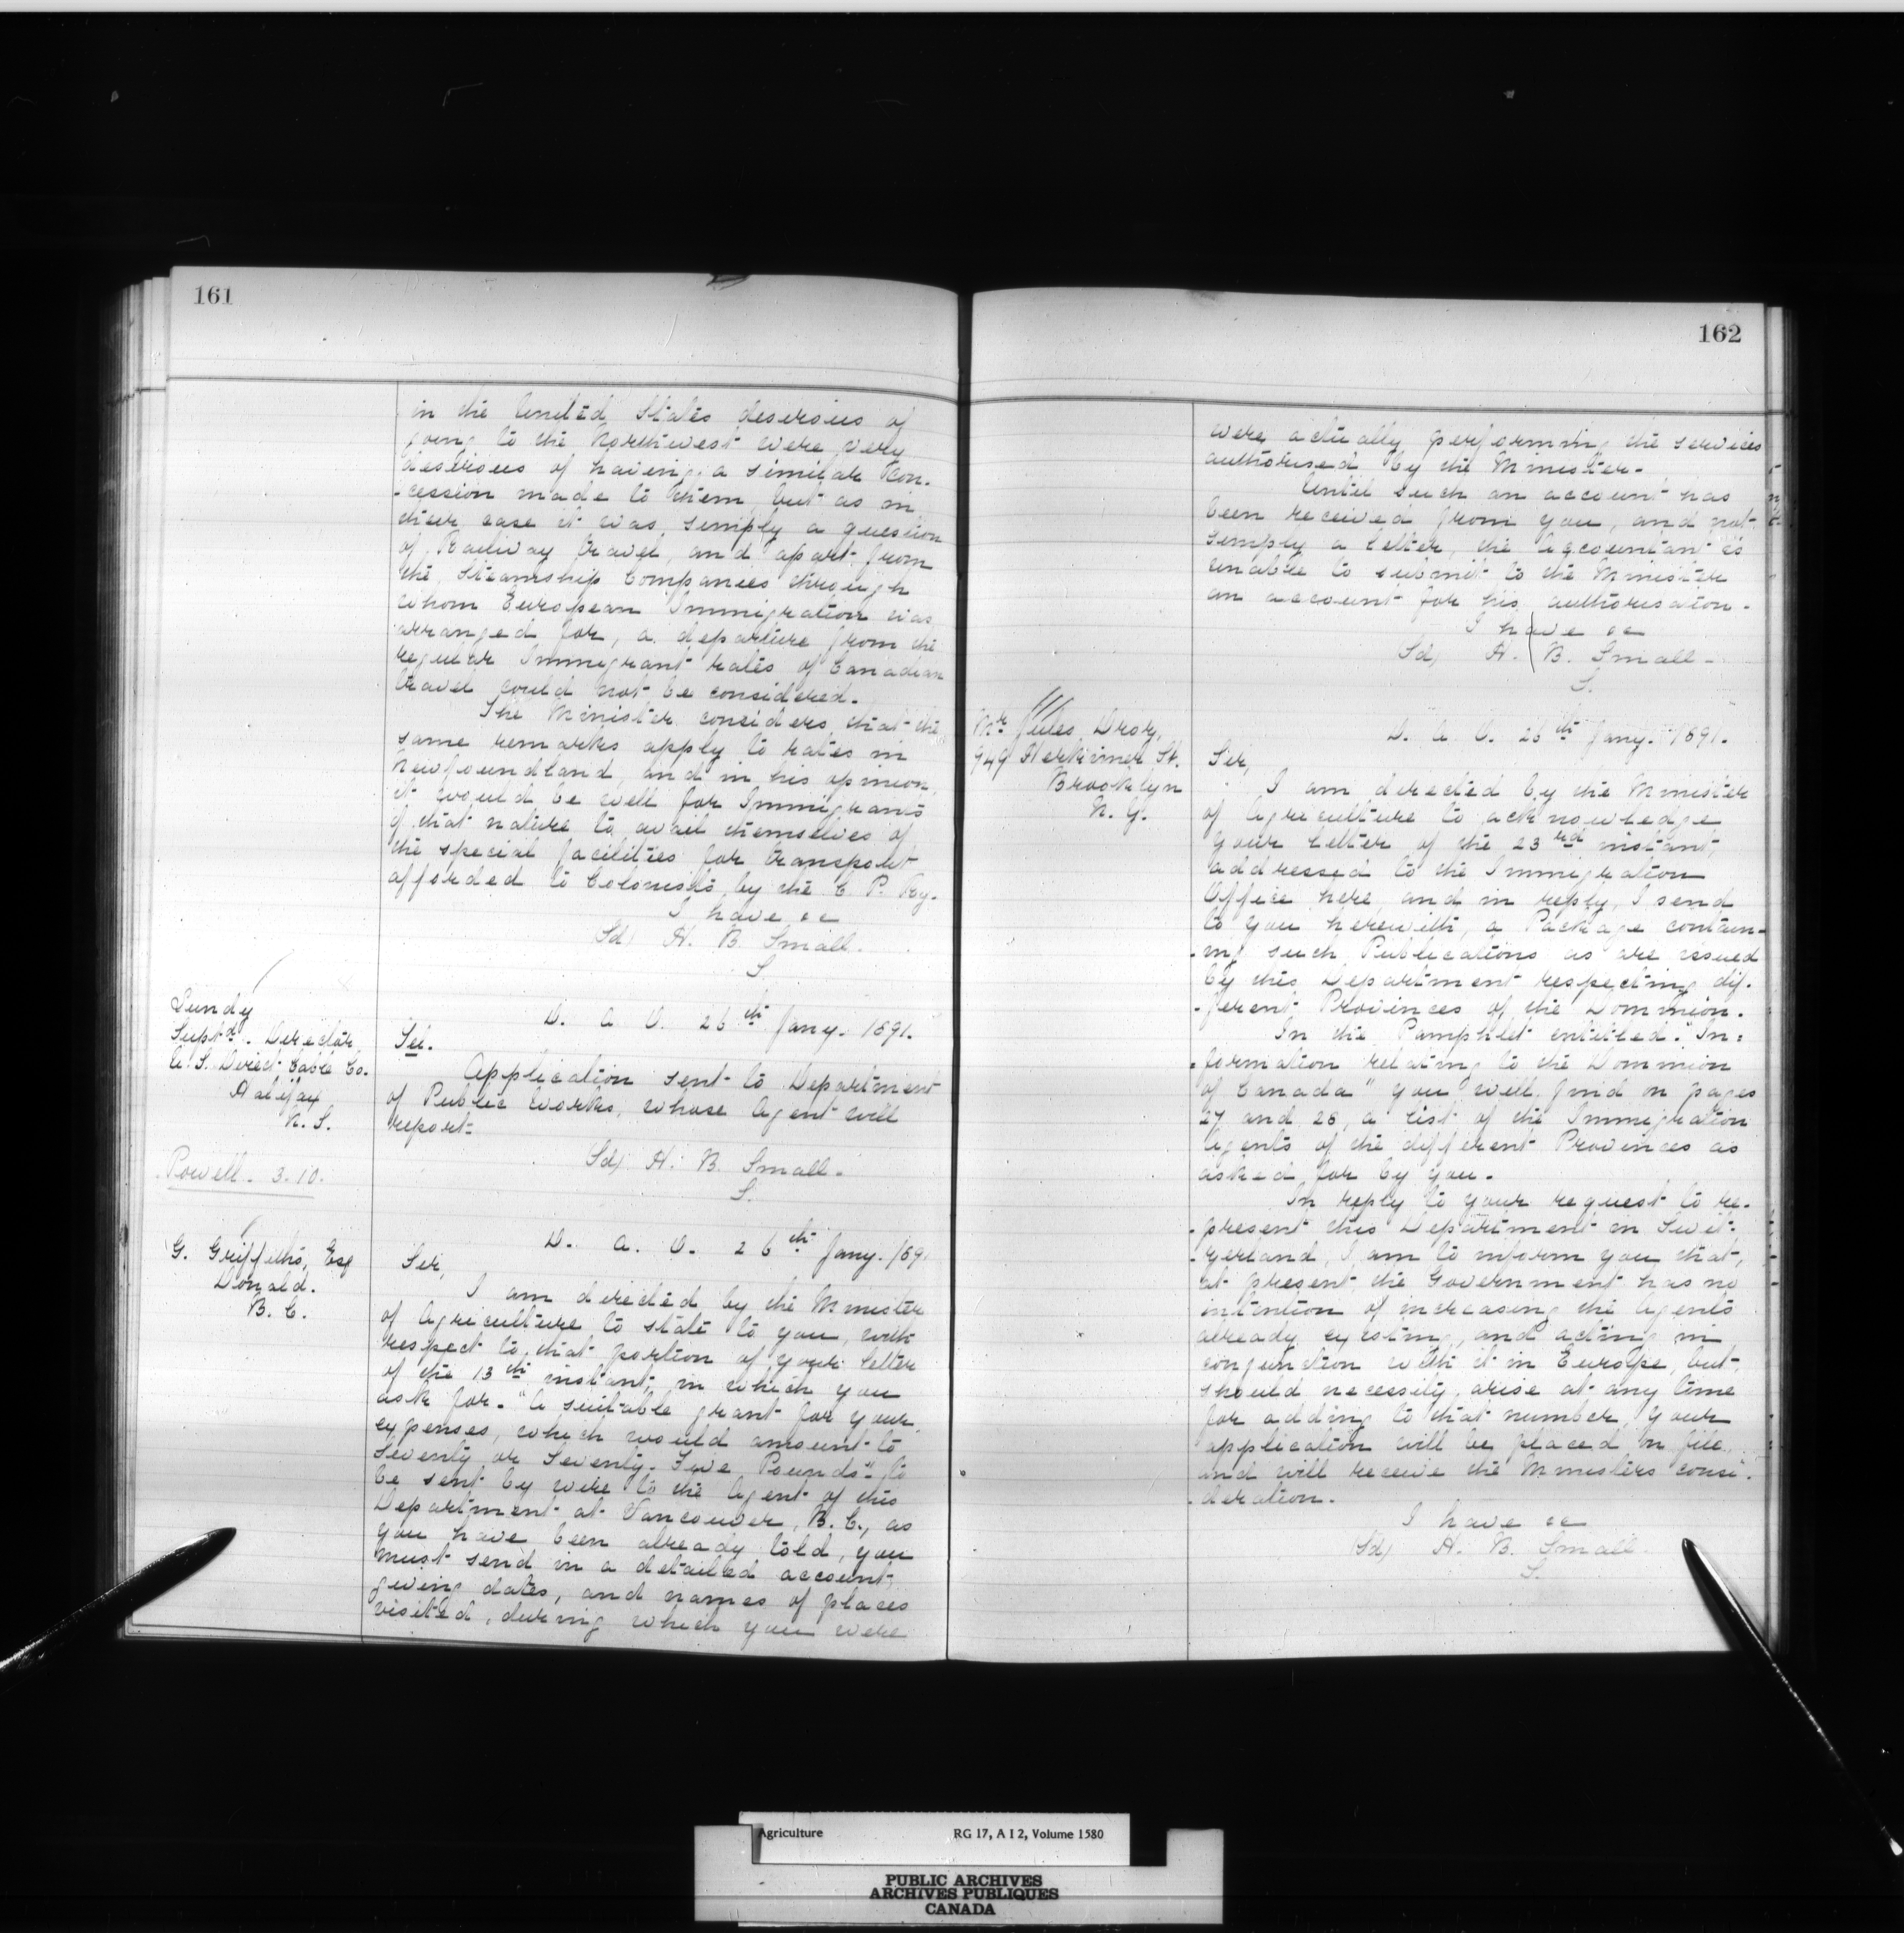 161
in the United States desirous of
going to the Northwest were very
desirous of having a similar Con-
-cession made to them, but as in
their case it was simply a question
of Railway travel, and apart from
the Steamship Companies through
whom European Immigration was
arranged for, a departure from the
regular Immigrant rates of Canadian
travel could not be considered.
The Minister considers that the
same remarks apply to rates in
Newfoundland, and in his opinion,
it would be well for Immigrants
of that nature to avail themselves of
the special facilities for transport
afforded to Colonists by the C. P. Ry.
I have &c
Sd/ H. B. Small.
S.
Sundy
Suptd. Director
U. S. Direct Cable Co.
Halifax
N. S.
D. A. O. 26th Jany. 1891.
Sir.
Application sent to Department
of Public Works, whose Agent will
report.
Sd/ H. B. Small.
S.
Powell. 3.10.
G. Griffiths, Esq
Donald.
B. C.
D. A. O. 26th Jany. 189
Sir,
I am directed by the Minister
of Agriculture to state to you, with
respect to that portion of your letter
of the 13th instant, in which you
ask for. "A suitable grant for your
expenses, which would amount to
Seventy or Seventy-Five Pounds" to
be sent by wire to the Agent of this
Department at Vancouver, B. C., as
you have been already told, you
must send in a detailed account,
giving dates, and names of places
visited, during which you were
162
were actually performing the services
authorised by the Minister.
Until such an account has
been received from you, and not
simply a letter, the Accountant is
unable to submit to the Minister
an account for his authorisation.
I have &c
Sd/ H. B. Small.
S.
Mr Jules Drory,
949 Herkimer St.
Brooklyn
N. Y.
D. A. O. 26th Jany. 1891.
Sir,
I am directed by the Minister
of Agriculture to acknowledge
your letter of the 23rd instant,
addressed to the Immigration
Office here, and in reply, I send
to you herewith, a Package contain-
-ing such Publications as are issued
by this Department respecting dif-
-ferent Provinces of the Dominion.
In the Pamphlet entitled. "In=
=formation relating to the Dominion
of Canada" you will find on pages
27 and 28, a list of the Immigration
Agents of the different Provinces as
asked for by you.
In reply to your request to re-
-present this Department in Swit-
-zerland, I am to inform you that,
at present the Government has no
intention of increasing the Agents
already existing, and acting in
conjunction with it in Europe, but
should necessity arise at any time
for adding to that number, your
application will be placed on file
and will receive the Ministers consi-
-deration.
I have &c
Sd/ H. B. Small.
S.
Agriculture RG 17, A I 2, Volume 1580
PUBLIC ARCHIVES
ARCHIVES PUBLIQUES
CANADA